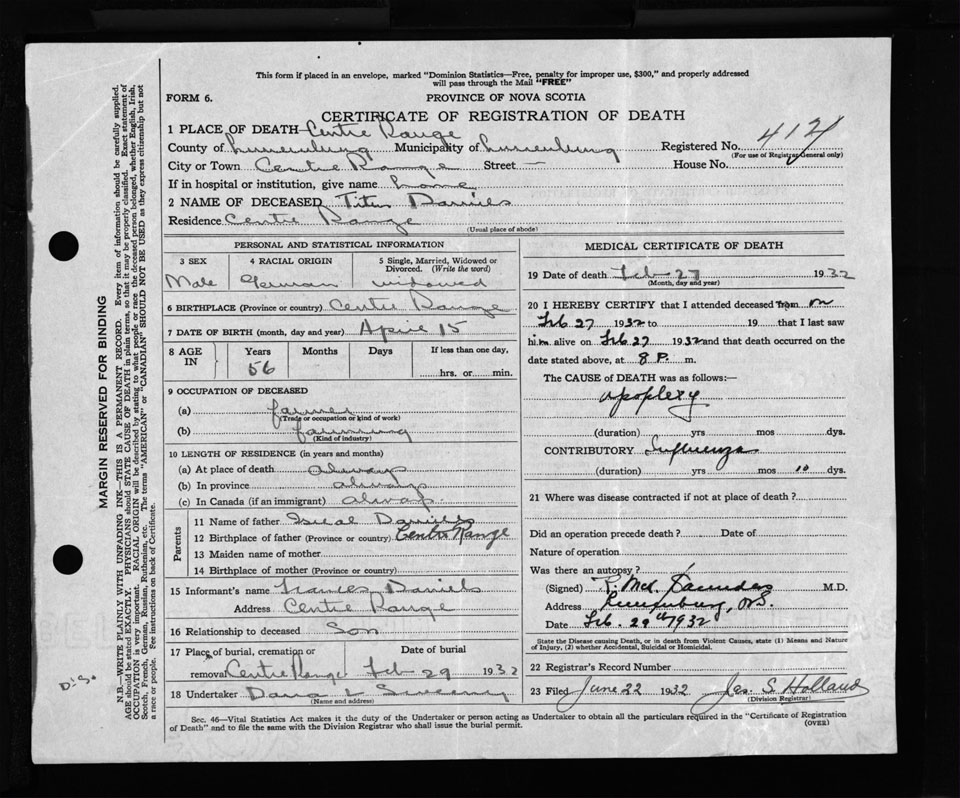 This form if placed in an envelope, marked "Dominion Statistics—Free, penalty for improper use, $300," and properly addressed
will pass through the Mail "FREE"
FORM 6. PROVINCE OF NOVA SCOTIA
CERTIFICATE OF REGISTRATION OF DEATH
1 PLACE OF DEATH— Centre Range
County of Lunenburg Municipality of Lunenburg Registered No. 412
(For use of Registrar General only)
City or Town Centre Range Street — House No.
If in hospital or institution, give name home
2 NAME OF DECEASED Titus Daniels
Residence Centre Range
(Usual place of abode)
PERSONAL AND STATISTICAL INFORMATION
3 SEX 4 RACIAL ORIGIN 5 Single, Married, Widowed or Divorced. (Write the word)
Male German widowed
6 BIRTHPLACE (Province or country) Centre Range
7 DATE OF BIRTH (month, day and year) April 15
8 AGE IN Years Months Days If less than one day,
56 hrs. or min.
9 OCCUPATION OF DECEASED
(a) farmer
(Trade or occupation or kind of work)
(b) farming
(Kind of industry)
10 LENGTH OF RESIDENCE (in years and months)
(a) At place of death always
(b) In province always
(c) In Canada (if an immigrant) always
Parents
11 Name of father Daniels
12 Birthplace of father (Province or country) Centre Range
13 Maiden name of mother
14 Birthplace of mother (Province or country)
15 Informant's name Daniels
Address Centre Range
16 Relationship to deceased Son
17 Place of burial, cremation or Date of burial
removal Centre Range Feb 29 1932
18 Undertaker Dana L Sweeny
(Name and address)
MEDICAL CERTIFICATE OF DEATH
19 Date of death Feb 27 1932
(Month, day and year)
20 I HEREBY CERTIFY that I attended deceased from on
Feb 27 1932 to 19 that I last saw
him alive on Feb 27 1932 and that death occurred on the
date stated above, at 8 P. m.
The CAUSE of DEATH was as follows:—
apoplexy
(duration) yrs mos dys.
CONTRIBUTORY Influenza
(duration) yrs mos 10 dys.
21 Where was disease contracted if not at place of death?
Did an operation precede death? Date of
Nature of operation
Was there an autopsy?
(Signed) R. McK Saunders M.D.
Address Lunenburg, N.S.
Date Feb. 29th 1932
State the Disease causing Death, or in death from Violent Causes, state (1) Means and Nature
of Injury, (2) whether Accidental, Suicidal or Homicidal.
22 Registrar's Record Number
23 Filed June 22 1932 Jas. S. Holland
(Division Registrar)
Sec. 46—Vital Statistics Act makes it the duty of the Undertaker or person acting as Undertaker to obtain all the particulars required in the "Certificate of Registration
of Death" and to file the same with the Division Registrar who shall issue the burial permit. (OVER)
MARGIN RESERVED FOR BINDING
N.B.—WRITE PLAINLY WITH UNFADING INK—THIS IS A PERMANENT RECORD. Every item of information should be carefully supplied.
AGE should be stated EXACTLY. PHYSICIANS should STATE CAUSE OF DEATH in plain terms, so that it may be properly classified. Exact statement of
OCCUPATION is very important. RACIAL ORIGIN will be described by stating to what people or race the deceased person belonged, whether English, Irish,
Scotch, French, German, Russian, Ruthenian, etc. The terms "AMERICAN" or "CANADIAN" SHOULD NOT BE USED as they express citizenship but not
a race or people. See instructions on back of Certificate.